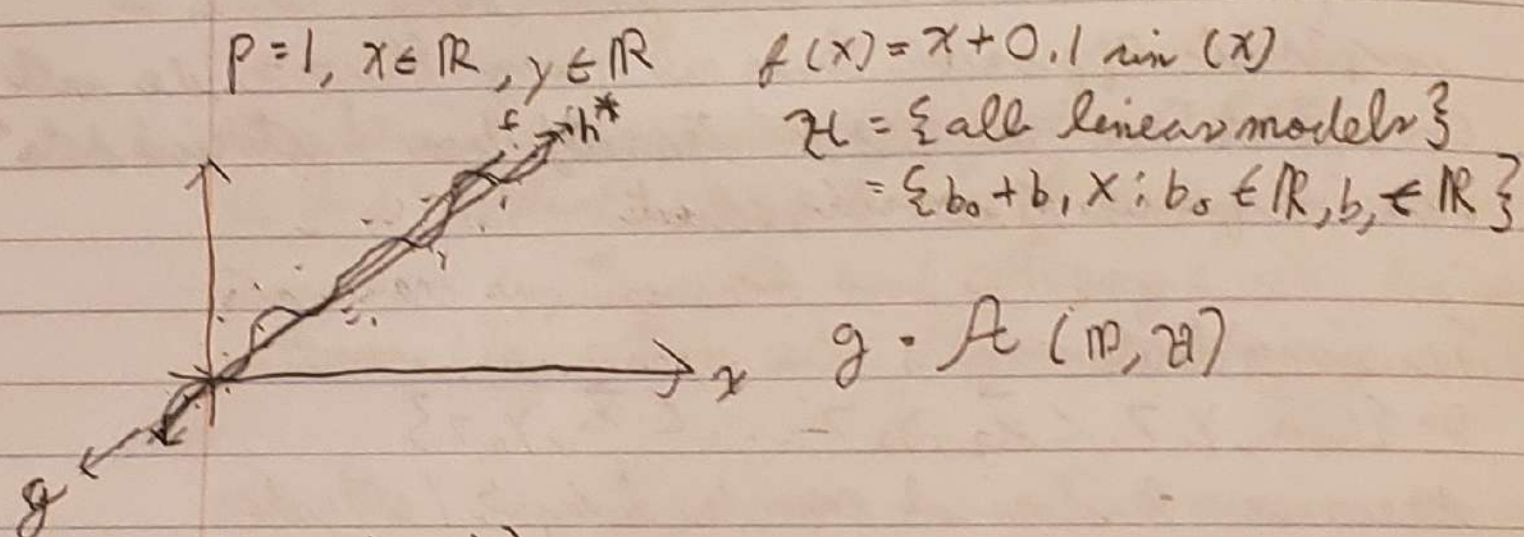 p = 1, x ∈ ℝ, y ∈ ℝ f(x) = x + 0.1 sin (x)
f h*
ℋ = {all linear models}
= {b₀ + b₁ x : b₀ ∈ ℝ, b₁ ∈ ℝ}
g = 𝒜 (𝔻, ℋ)
x
g